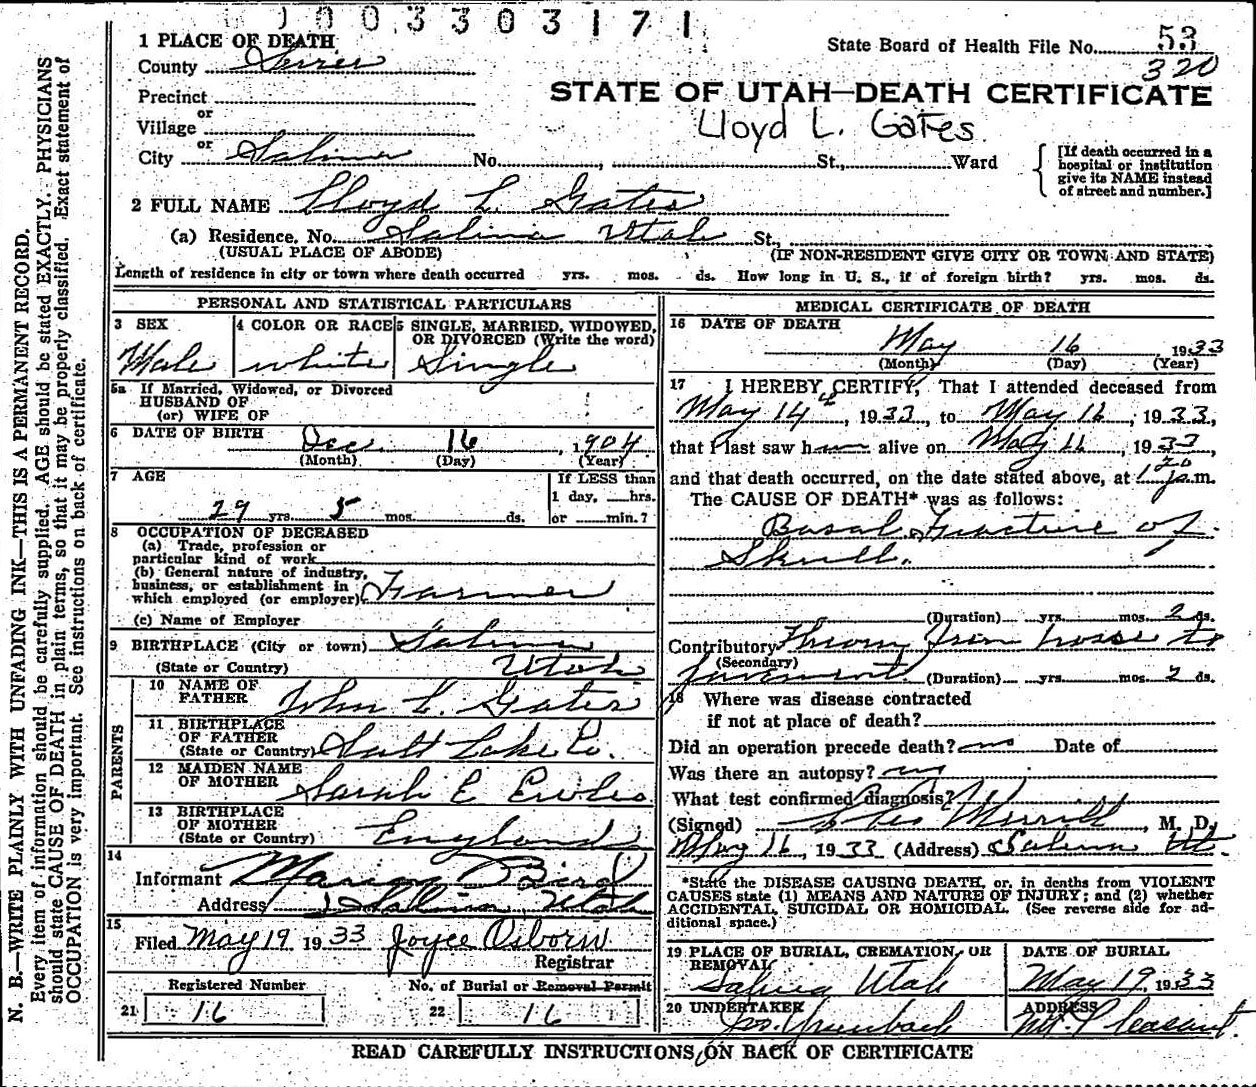 0003303171
1 PLACE OF DEATH
State Board of Health File No. 53
320
County Sevier
STATE OF UTAH—DEATH CERTIFICATE
Precinct
or
Village
Lloyd L. Gates
or
City Salina No. , St., Ward
[If death occurred in a
hospital or institution
give its NAME instead
of street and number.]
2 FULL NAME Lloyd L. Gates
(a) Residence, No. Salina Utah St.,
(USUAL PLACE OF ABODE) (IF NON-RESIDENT GIVE CITY OR TOWN AND STATE)
Length of residence in city or town where death occurred yrs. mos. ds. How long in U. S., if of foreign birth? yrs. mos. ds.
PERSONAL AND STATISTICAL PARTICULARS
3 SEX 4 COLOR OR RACE 5 SINGLE, MARRIED, WIDOWED,
OR DIVORCED (Write the word)
Male white Single
5a If Married, Widowed, or Divorced
HUSBAND OF
(or) WIFE OF
6 DATE OF BIRTH Dec 16, 1904
(Month) (Day) (Year)
7 AGE If LESS than
1 day, hrs.
29 yrs. 5 mos. ds. or min.?
8 OCCUPATION OF DECEASED
(a) Trade, profession or
particular kind of work
(b) General nature of industry,
business, or establishment in
which employed (or employer) Farmer
(c) Name of Employer
9 BIRTHPLACE (City or town) Salina
(State or Country) Utah
PARENTS
10 NAME OF
FATHER John L. Gates
11 BIRTHPLACE
OF FATHER
(State or Country) Salt Lake Co.
12 MAIDEN NAME
OF MOTHER Sarah E
13 BIRTHPLACE
OF MOTHER
(State or Country) England
14
Informant Marion Bird
Address Salina Utah
15
Filed May 19 1933 Joyce Osborn
Registrar
Registered Number No. of Burial or Removal Permit
21 16 22 16
MEDICAL CERTIFICATE OF DEATH
16 DATE OF DEATH
May 16 1933
(Month) (Day) (Year)
17 I HEREBY CERTIFY, That I attended deceased from
May 14th, 1933, to May 16, 1933,
that I last saw h alive on May 16, 1933,
and that death occurred, on the date stated above, at 1 20 m.
The CAUSE OF DEATH* was as follows:
Basal Fracture of
Skull.
(Duration) yrs. mos. 2 ds.
Contributory Thrown from horse to
(Secondary)
pavement (Duration) yrs. mos. 2 ds.
18 Where was disease contracted
if not at place of death?
Did an operation precede death? no Date of
Was there an autopsy? no
What test confirmed diagnosis?
(Signed) Merrill, M. D.
May 16, 1933 (Address) Salina Ut.
*State the DISEASE CAUSING DEATH, or, in deaths from VIOLENT
CAUSES state (1) MEANS AND NATURE OF INJURY; and (2) whether
ACCIDENTAL, SUICIDAL OR HOMICIDAL. (See reverse side for ad-
ditional space.)
19 PLACE OF BURIAL, CREMATION, OR
REMOVAL
Salina Utah
DATE OF BURIAL
May 19, 1933
20 UNDERTAKER
ADDRESS
Mt. Pleasant.
READ CAREFULLY INSTRUCTIONS ON BACK OF CERTIFICATE
N. B.—WRITE PLAINLY WITH UNFADING INK—THIS IS A PERMANENT RECORD.
Every item of information should be carefully supplied. AGE should be stated EXACTLY. PHYSICIANS
should state CAUSE OF DEATH in plain terms, so that it may be properly classified. Exact statement of
OCCUPATION is very important. See instructions on back of certificate.